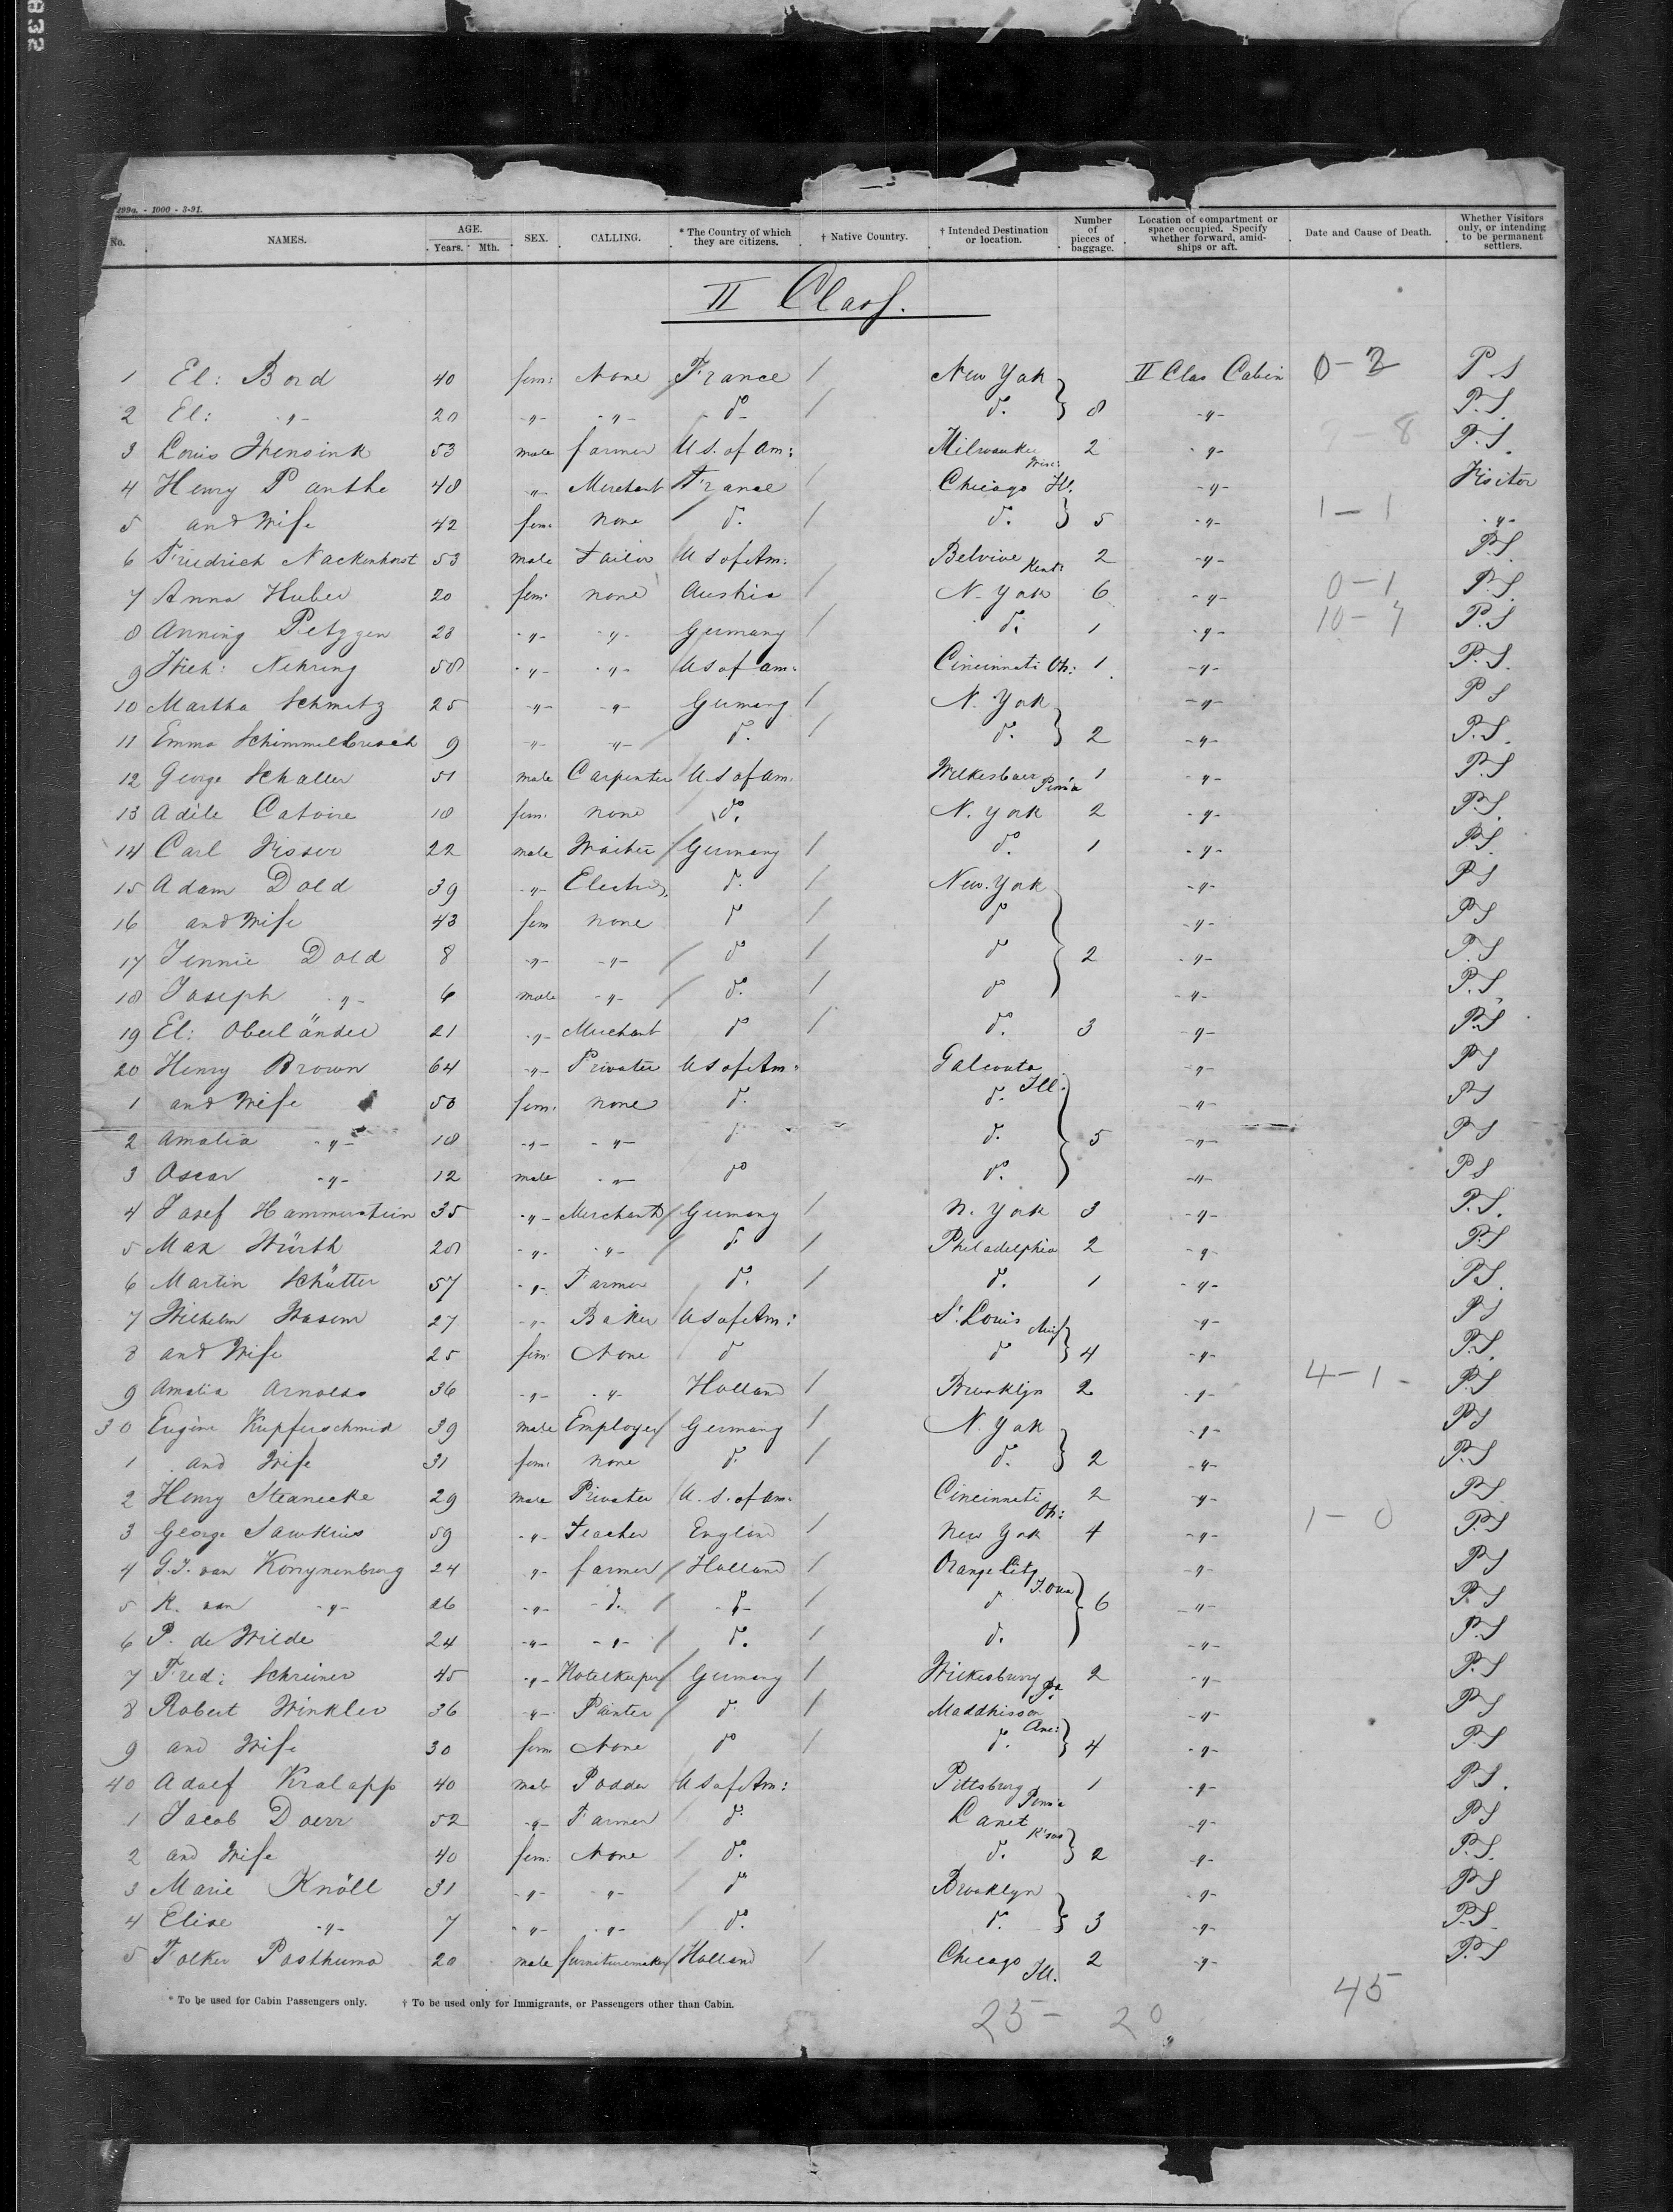 832
299a. - 1000 - 3-91.
No. NAMES. AGE. Years. Mth. SEX. CALLING. * The Country of which they are citizens. † Native Country. † Intended Destination or location. Number of pieces of baggage. Location of compartment or space occupied. Specify whether forward, amidships or aft. Date and Cause of Death. Whether Visitors only, or intending to be permanent settlers.
II Class.
1 El: Bord 40 fem: None France / New York II Clas Cabin 0-2 P.S
2 El: -"- 20 -"- -"- do / do. } 8 -"- P.S.
3 Louis Wensink 53 male farmer U.S. of Am: Milwaukee Wisc: 2 -"- 8 P.S.
4 Henry Panthe 48 -"- Merchant France / Chicago Ill. -"- Visitor
5 and Wife 42 fem. none do. / do. } 5 -"- 1-1 -"-
6 Friedrich Nackenhorst 53 male Tailor U S of Am: Belvive Kent: 2 -"- P.S.
7 Anna Huber 20 fem. none Austria / N. York 6 -"- 0-1 P.S.
8 Anning Petzgen 28 -"- -"- Germany / do. 1 -"- 10-7 P.S
9 Wich: Nehring 58 -"- -"- U S of Am: Cincinnati Oh: 1 -"- P.S.
10 Martha Schmitz 25 -"- -"- Germany / N. York -"- P S
11 Emma Schimmelbusch 9 -"- -"- do. / do. } 2 -"- P.S.
12 George Schaller 51 male Carpenter U.S of Am. Wilkesbaer Penn'a 1 -"- P.S
13 Adèle Catoire 18 fem. none do. N. York 2 -"- P.S.
14 Carl Visser 22 male Waiter Germany / do. 1 -"- P.S.
15 Adam Dold 39 -"- Electr. do. / New York -"- P S
16 and Wife 43 fem none do / do -"- P.S
17 Jennie Dold 8 -"- -"- do / do } 2 -"- P.S
18 Joseph -"- 6 male -"- do. / do -"- P.S,
19 El: Oberländer 21 -"- Merchant do / do. 3 -"- P.S
20 Henry Brown 64 -"- Privatier U S of Am: -"- P S
1 and Wife 50 fem. none do. do. Ill. -"- P S
2 Amalia -"- 18 -"- -"- do do. } 5 -"- P S
3 Oscar -"- 12 male -"- do do. -"- P S
4 Josef Hammerstein 35 -"- Merchant Germany / N. York 3 -"- P.S.
5 Max Würth 28 -"- -"- do / Philadelphia 2 -"- P.S
6 Martin Schütter 57 -"- Farmer do. / do. 1 -"- P.S.
7 Wilhelm Wasem 27 -"- Baker U S of Am: St. Louis Miss -"- P S
8 and Wife 25 fem None do do } 4 -"- P.S.
9 Amalia Arnolds 36 -"- -"- Holland / Brooklyn 2 -"- 4-1- P.S
30 Eugène Kupferschmid 39 male Employer Germany / N. York -"- P S
1 and Wife 31 fem. none do. / do. } 2 -"- P.S
2 Henry Steanecke 29 male Privatier U. S. of Am: Cincinnati Oh: 2 -"- P.S
3 George Sawkins 59 -"- Teacher England / New York 4 -"- 1-0 P.S
4 G.J. van Konynenburg 24 -"- farmer Holland / Orange City Iowa -"- P S
5 K. van -"- 26 -"- do. do / do } 6 -"- P.S
6 P. de Wilde 24 -"- -"- do. / do. -"- P.S
7 Fred: Schreiner 45 -"- Hotelkeeper Germany / Wilkesburg Pa 2 -"- P.S
8 Robert Winkler 36 -"- Painter do / Maddhisson -"- P S
9 and Wife 30 fem None do / do. } 4 -"- P.S
40 Adolf Kralapp 40 male U S of Am: Pittsburg Penn'a 1 -"- P.S.
1 Jacob Doerr 52 -"- Farmer do. Canet K'sas -"- P S
2 and Wife 40 fem: None do. do. } 2 -"- P.S.
3 Marie Knöll 31 -"- -"- do Brooklyn -"- P S
4 Elise -"- 7 -"- -"- do. do. } 3 -"- P.S.
5 Folker Posthuma 20 male furnituremaker Holland / Chicago Ill. 2 -"- P.S
* To be used for Cabin Passengers only. † To be used only for Immigrants, or Passengers other than Cabin.
25 - 20. 45